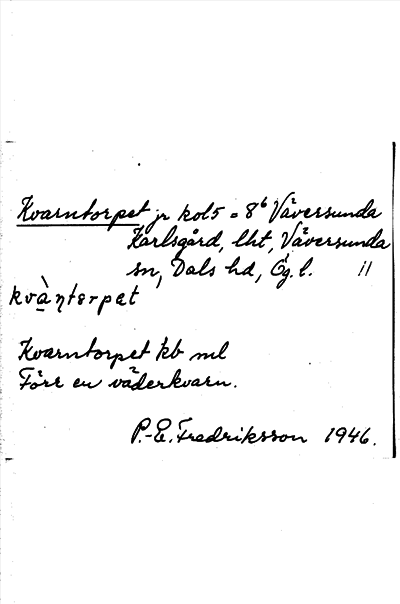 Kvarntorpet jr kol5 = 8⁶ Väversunda
Karlsgård, lht, Väversunda
sn, Dals hd, Ög. l. 11
kvàn̩tɘrpɘt
Kvarntorpet kb ml
Förr en väderkvarn.
P.-E. Fredriksson 1946.